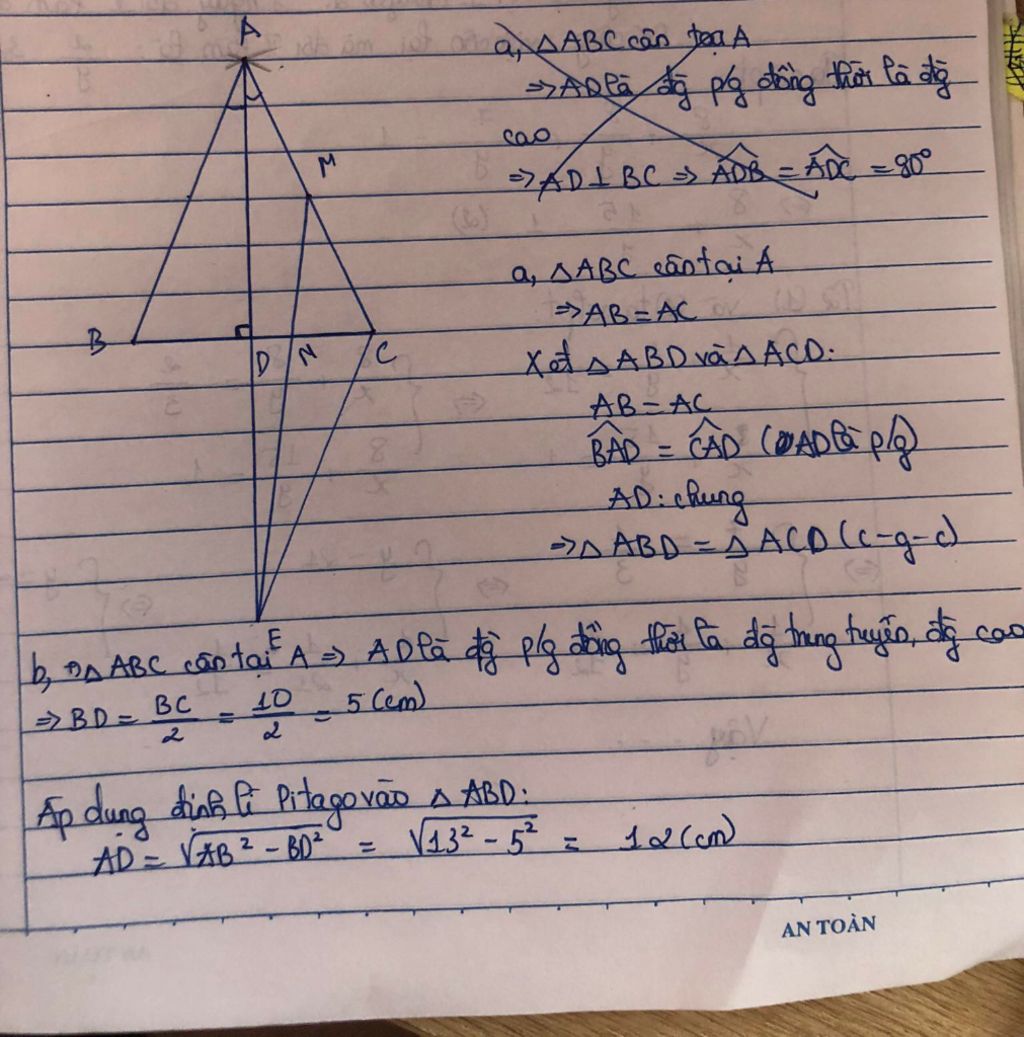 A
M
B
D
N
C
E
a, △ABC cân tại A
=> AD là đg p/g đồng thời là đg
cao
=> AD ⊥ BC => ADB = ADC = 90°
a, △ABC cân tại A
=> AB = AC
Xét △ABD và △ACD:
AB = AC
BAD = CAD (AD là p/g)
AD: chung
=> △ABD = △ACD (c-g-c)
b, △ABC cân tại A => AD là đg p/g đồng thời là đg trung tuyến, đg cao
=> BD = BC/2 = 10/2 = 5 (cm)
Áp dụng định lí Pitago vào △ABD:
AD = √AB² - BD² = √13² - 5² = 12 (cm)
AN TOÀN